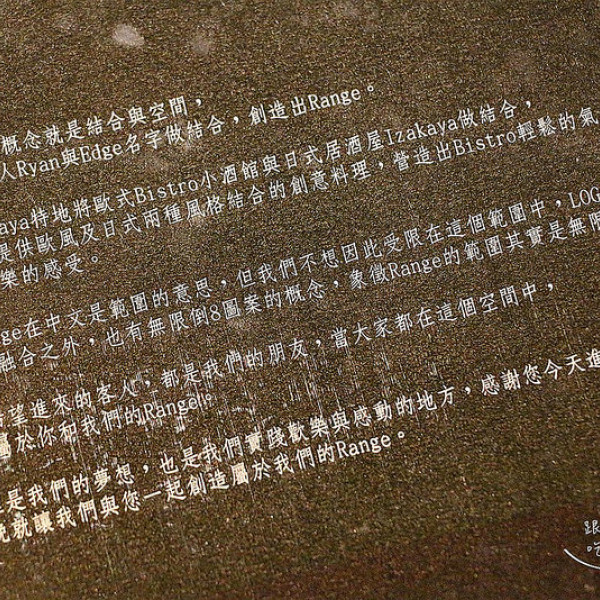 概念就是結合與空間，
人Ryan與Edge名字做結合，創造出Range。
aya特地將歐式Bistro小酒館與日式居酒屋Izakaya做結合，
提供歐風及日式兩種風格結合的創意料理，營造出Bistro輕鬆的氣
樂的感受。
ge在中文是範圍的意思，但我們不想因此受限在這個範圍中，LOG
融合之外，也有無限倒8圖案的概念，象徵Range的範圍其實是無限
希望進來的客人，都是我們的朋友，當大家都在這個空間中，
屬於你和我們的Range。
是我們的夢想，也是我們實踐歡樂與感動的地方，感謝您今天進
就讓我們與您一起創造屬於我們的Range。
跟
吃